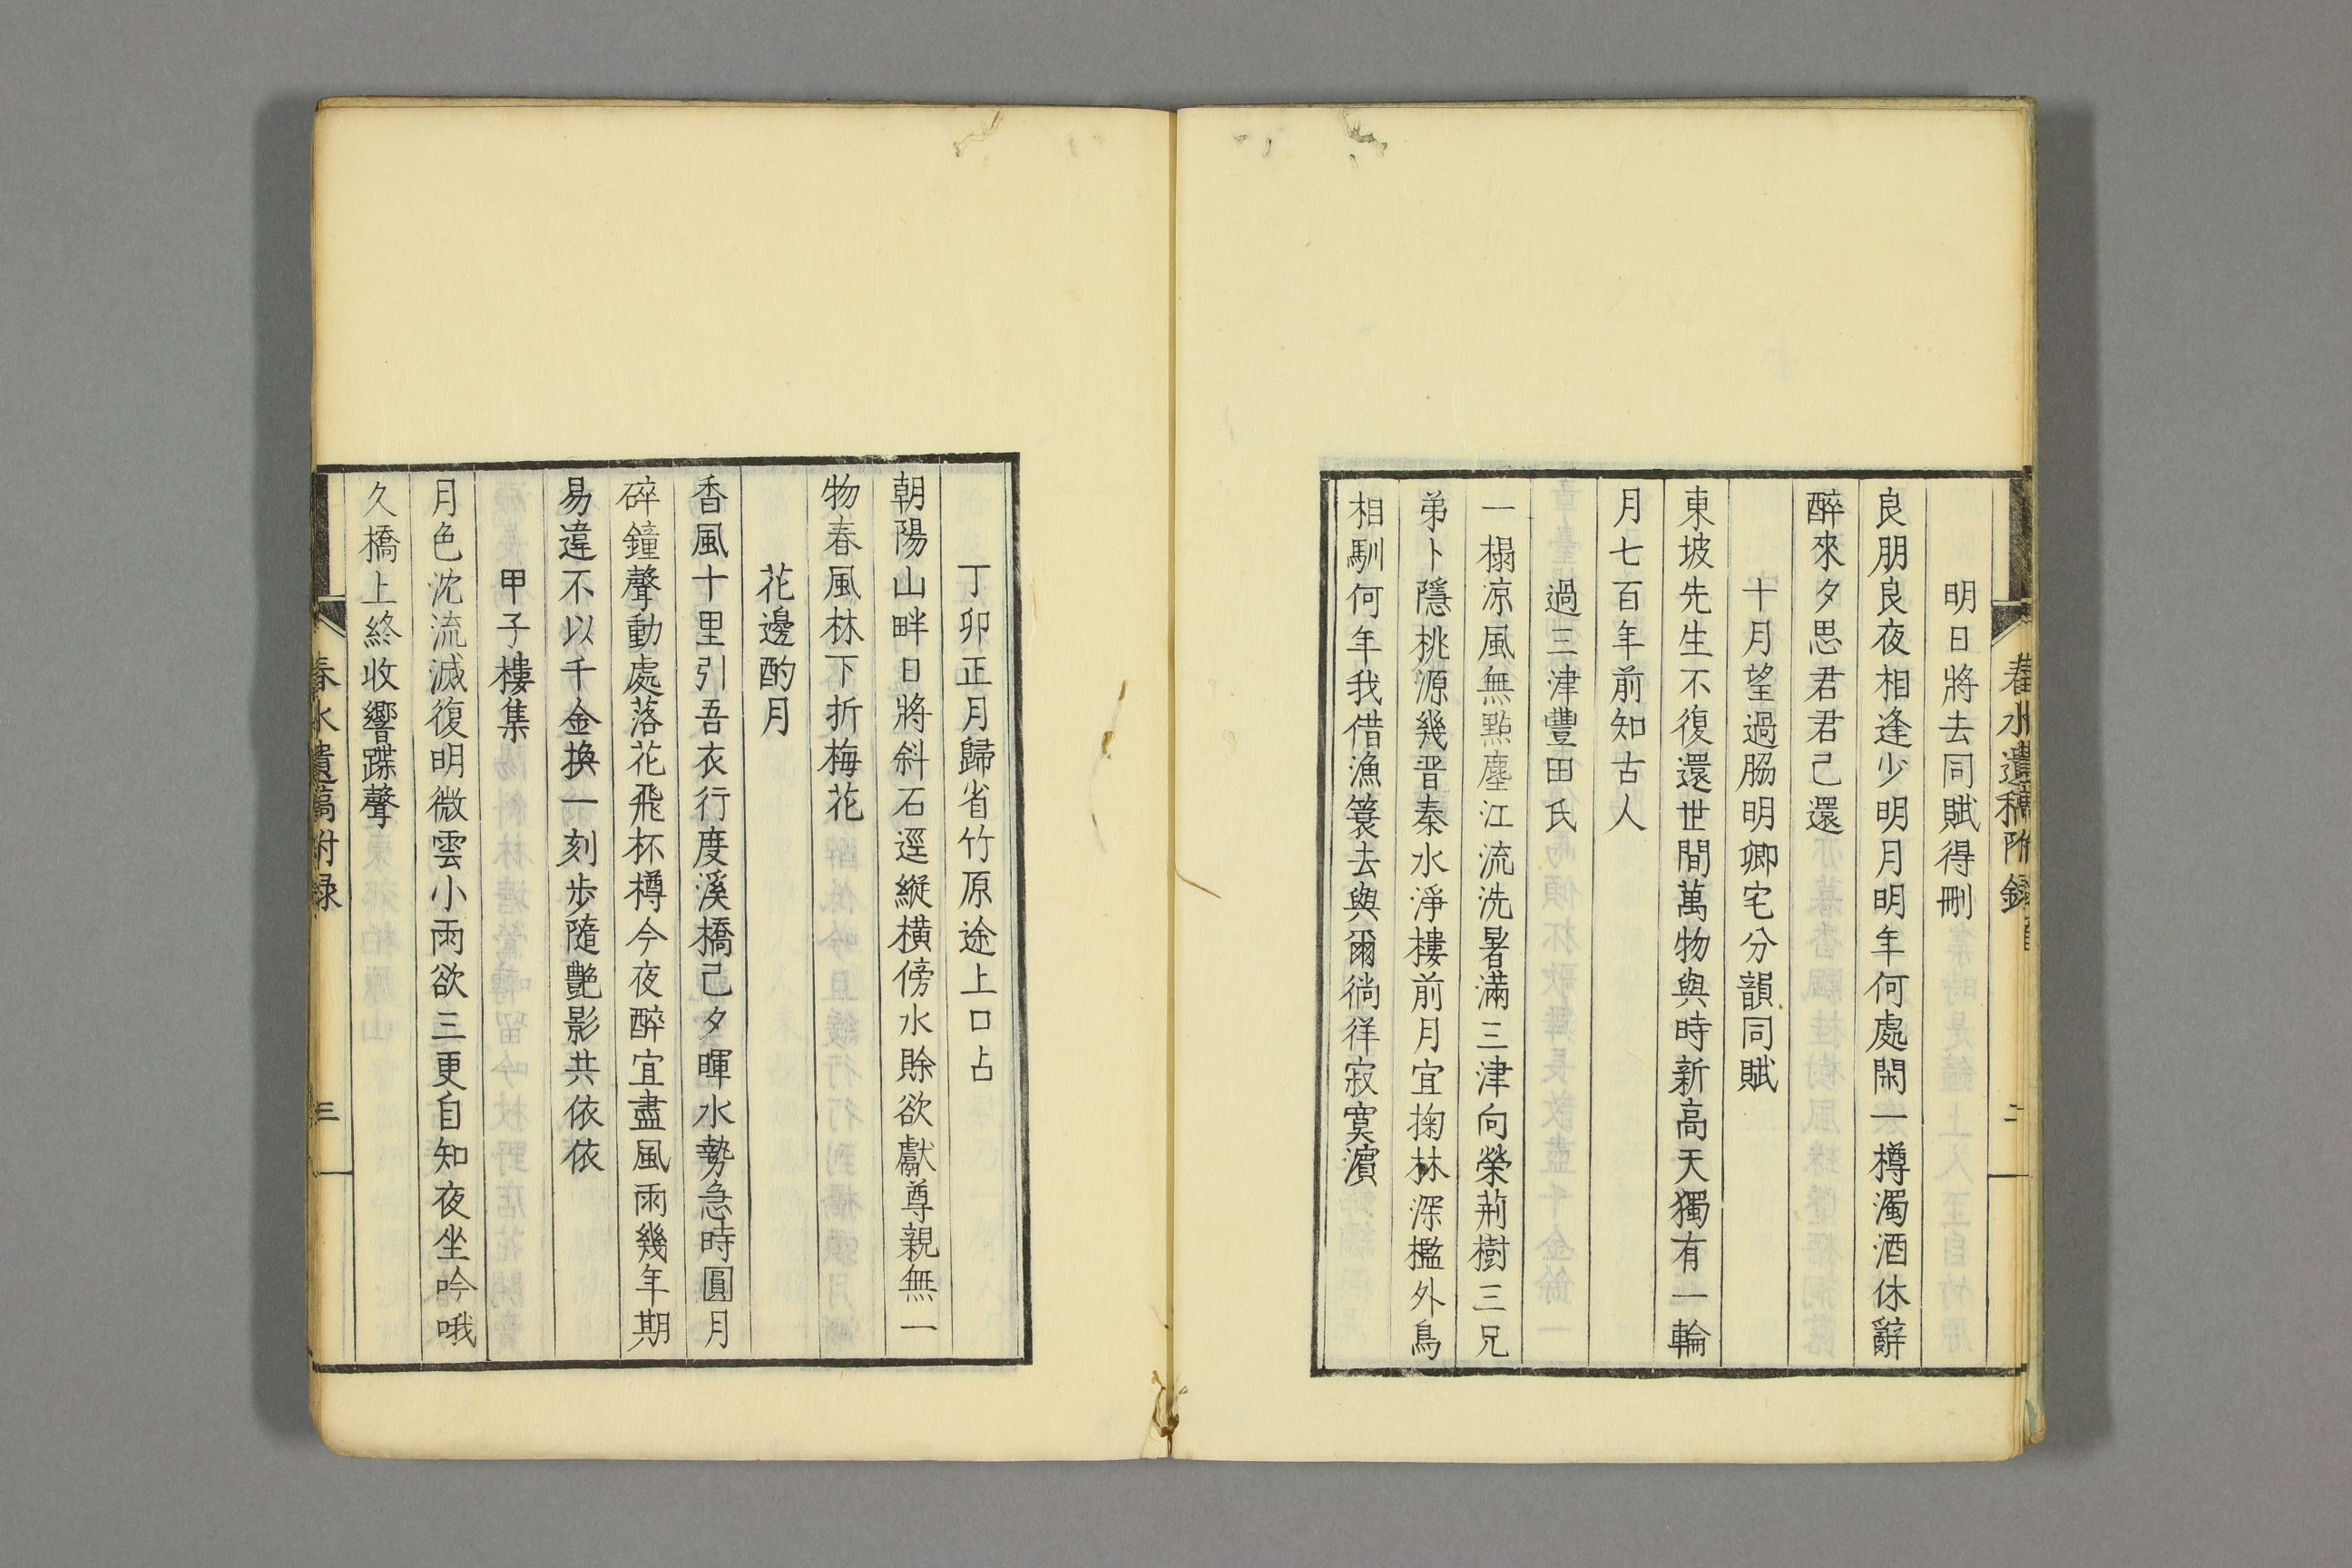 明日將去同賦得刪
良朋良夜相逢少明月明年何處閑一樽濁酒休辭
醉來夕思君君已還
十月望過脇明卿宅分韻同賦
東坡先生不復還世間萬物與時新高天獨有一輪
月七百年前知古人
過三津豐田氏
一榻凉風無點塵江流洗暑滿三津向榮荊樹三兄
弟卜隱桃源幾晋秦水淨樓前月宜掬林深檻外鳥
相馴何年我借漁簑去與爾徜徉寂寞濵
丁卯正月歸省竹原途上口占
朝陽山畔日將斜石逕縱横傍水賖欲獻尊親無一
物春風林下折梅花
花邊酌月
香風十里引吾衣行度溪橋已夕暉水勢急時圓月
碎鐘聲動處落花飛杯樽今夜醉宜盡風雨幾年期
易違不以千金換一刻歩隨艶影共依依
甲子樓集
月色沈流滅復明微雲小雨欲三更自知夜坐吟哦
久橋上終收響蹀聲
春水遺稿附録
三